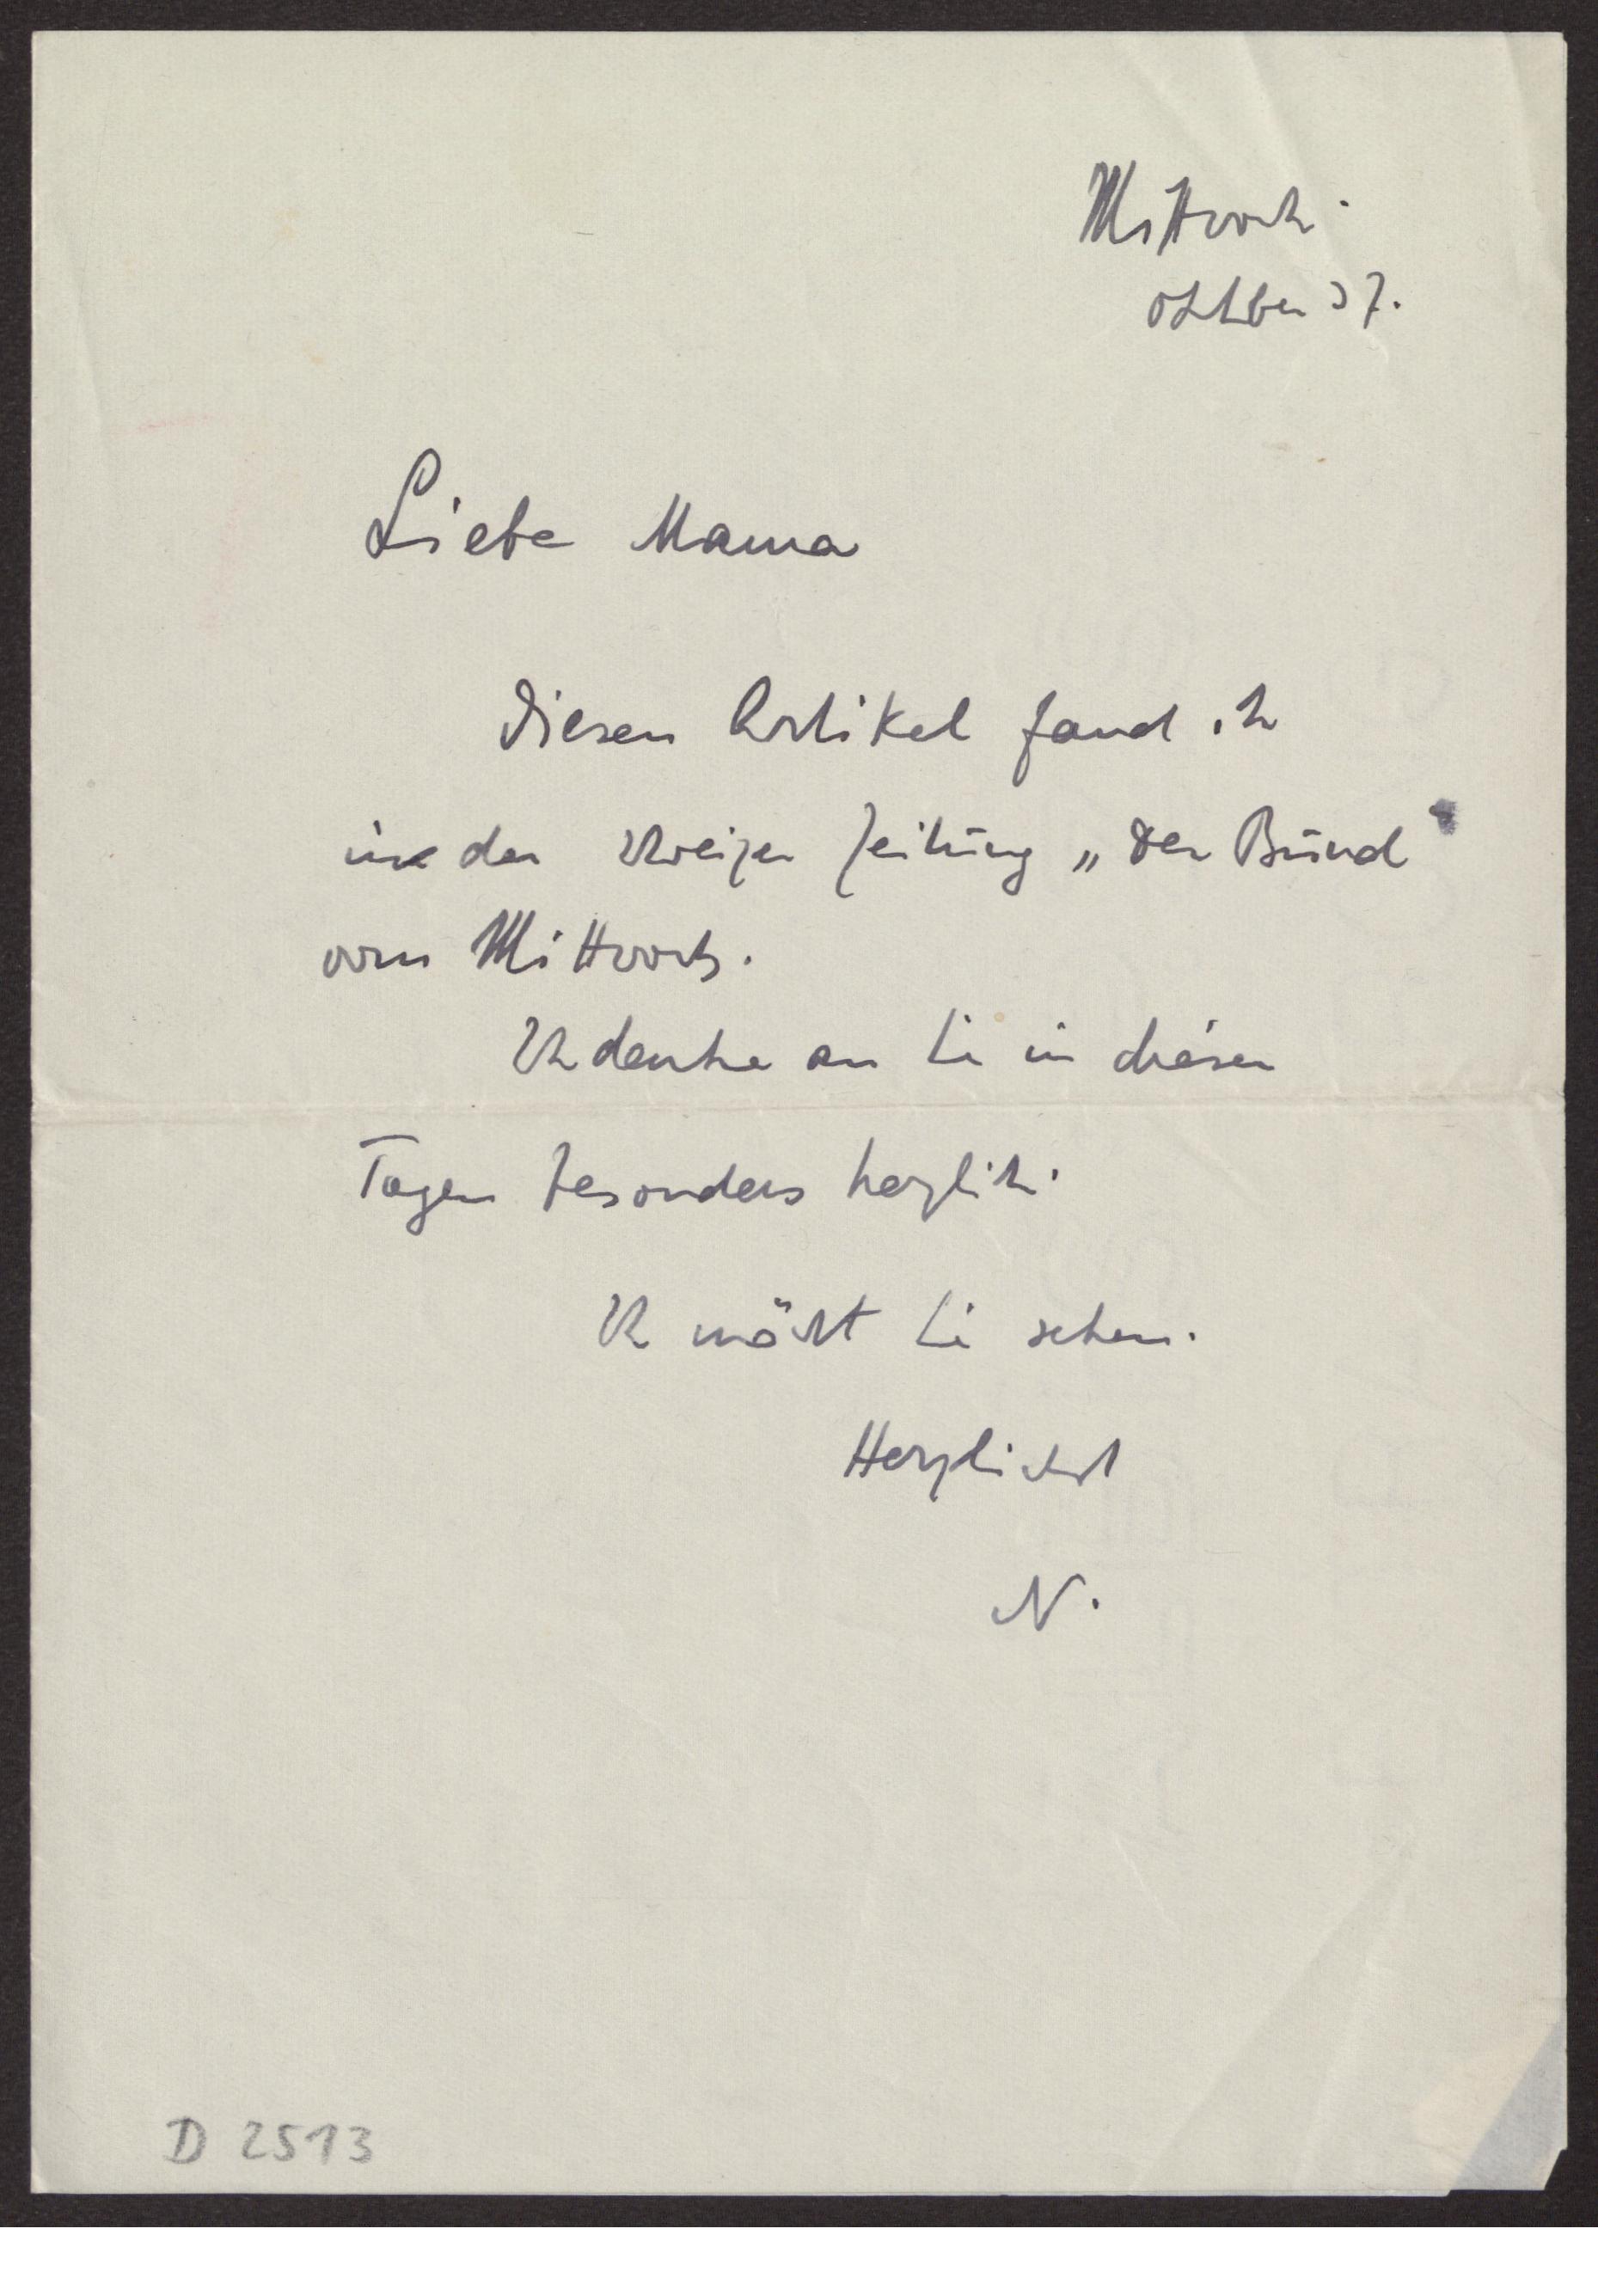 Mittwoch.
Oktober 37.
Liebe Mama
Diesen Artikel fand ich
in der Schweizer Zeitung „Der Bund“
vom Mittwoch.
Ich denke an Sie in diesen
Tagen besonders herzlich.
Ich möcht Sie sehen.
Herzlichst
N.
D 2513